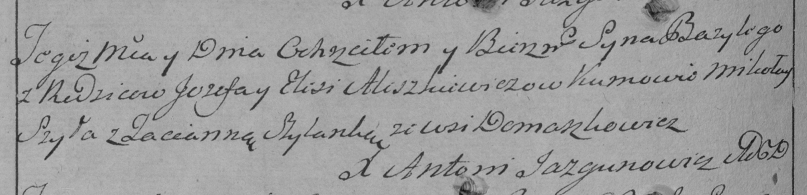 Tegiż Mca y Dnia Ochrzciłem y Bierzm. Syna Bazylego
z Rodzicow Jozefa y Elisi Aleszkiewiczow Kumowie Mikołay
Szyła z Zacianną Szylanką ze wsi Domaszkowicz
X Antoni Jazgunowicz